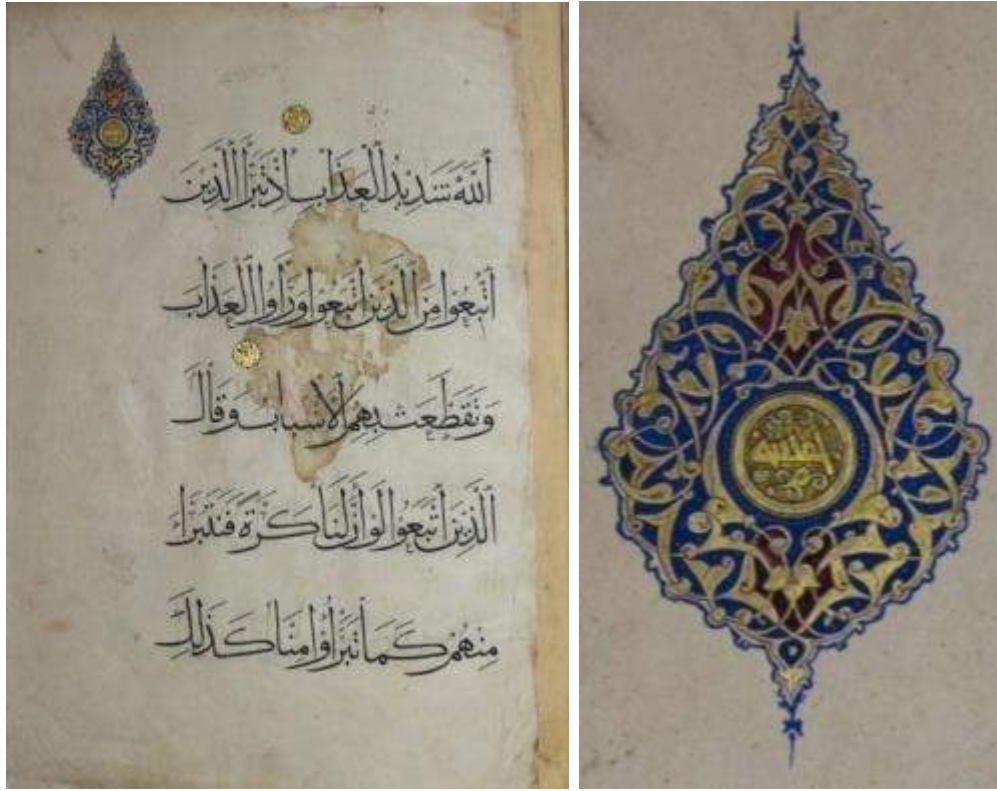 اَللهَ شَدِيدُ الْعَذَابِ اِذْ تَبَرَّأَ الَّذِينَ
اتُّبِعُوا مِنَ الَّذِينَ اتَّبَعُوا وَرَأَوُا الْعَذَابَ
وَتَقَطَّعَتْ بِهِمُ الْأَسْبَابُ وَقَالَ
الَّذِينَ اتَّبَعُوا لَوْ أَنَّ لَنَا كَرَّةً فَنَتَبَرَّأَ
مِنْهُمْ كَمَا تَبَرَّأُوا مِنَّا كَذَلِكَ